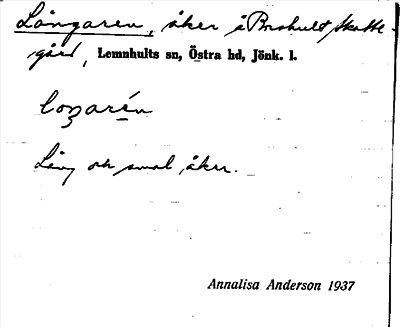 Långaren, åker å Boshult Skatte-
gård, Lemnhults sn, Östra hd, Jönk. l.
loŋarén
Lång och smal åker.
Annalisa Anderson 1937